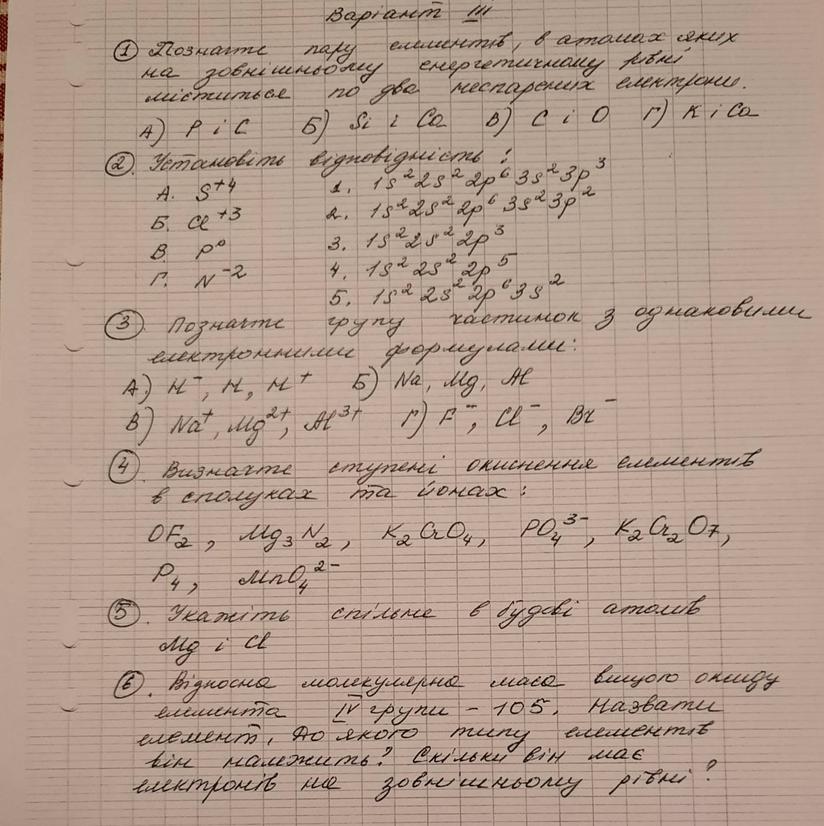 Варіант III
1 Позначте пару елементів, в атомах яких
на зовнішньому енергетичному рівні
міститься по два неспарених електрони.
А) P і C Б) Si і Ca В) C і O Г) K і Ca
2. Установіть відповідність:
А. S⁺⁴ 1. 1s²2s²2p⁶3s²3p³
Б. Cl⁺³ 2. 1s²2s²2p⁶3s²3p²
В. P⁰ 3. 1s²2s²2p³
Г. N⁻² 4. 1s²2s²2p⁵
5. 1s²2s²2p⁶3s²
3. Позначте групу частинок з однаковими
електронними формулами:
А) H⁻, H, H⁺ Б) Na, Mg, Al
В) Na⁺, Mg²⁺, Al³⁺ Г) F⁻, Cl⁻, Br⁻
4. Визначте ступені окиснення елементів
в сполуках та йонах:
OF₂, Mg₃N₂, K₂CrO₄, PO₄³⁻, K₂Cr₂O₇,
P₄, MnO₄²⁻
5. Укажіть спільне в будові атомів
Mg і Cl
6. Відносна молекулярна маса вищого оксиду
елемента IV групи - 105. Назвати
елемент. До якого типу елементів
він належить? Скільки він має
електронів на зовнішньому рівні?